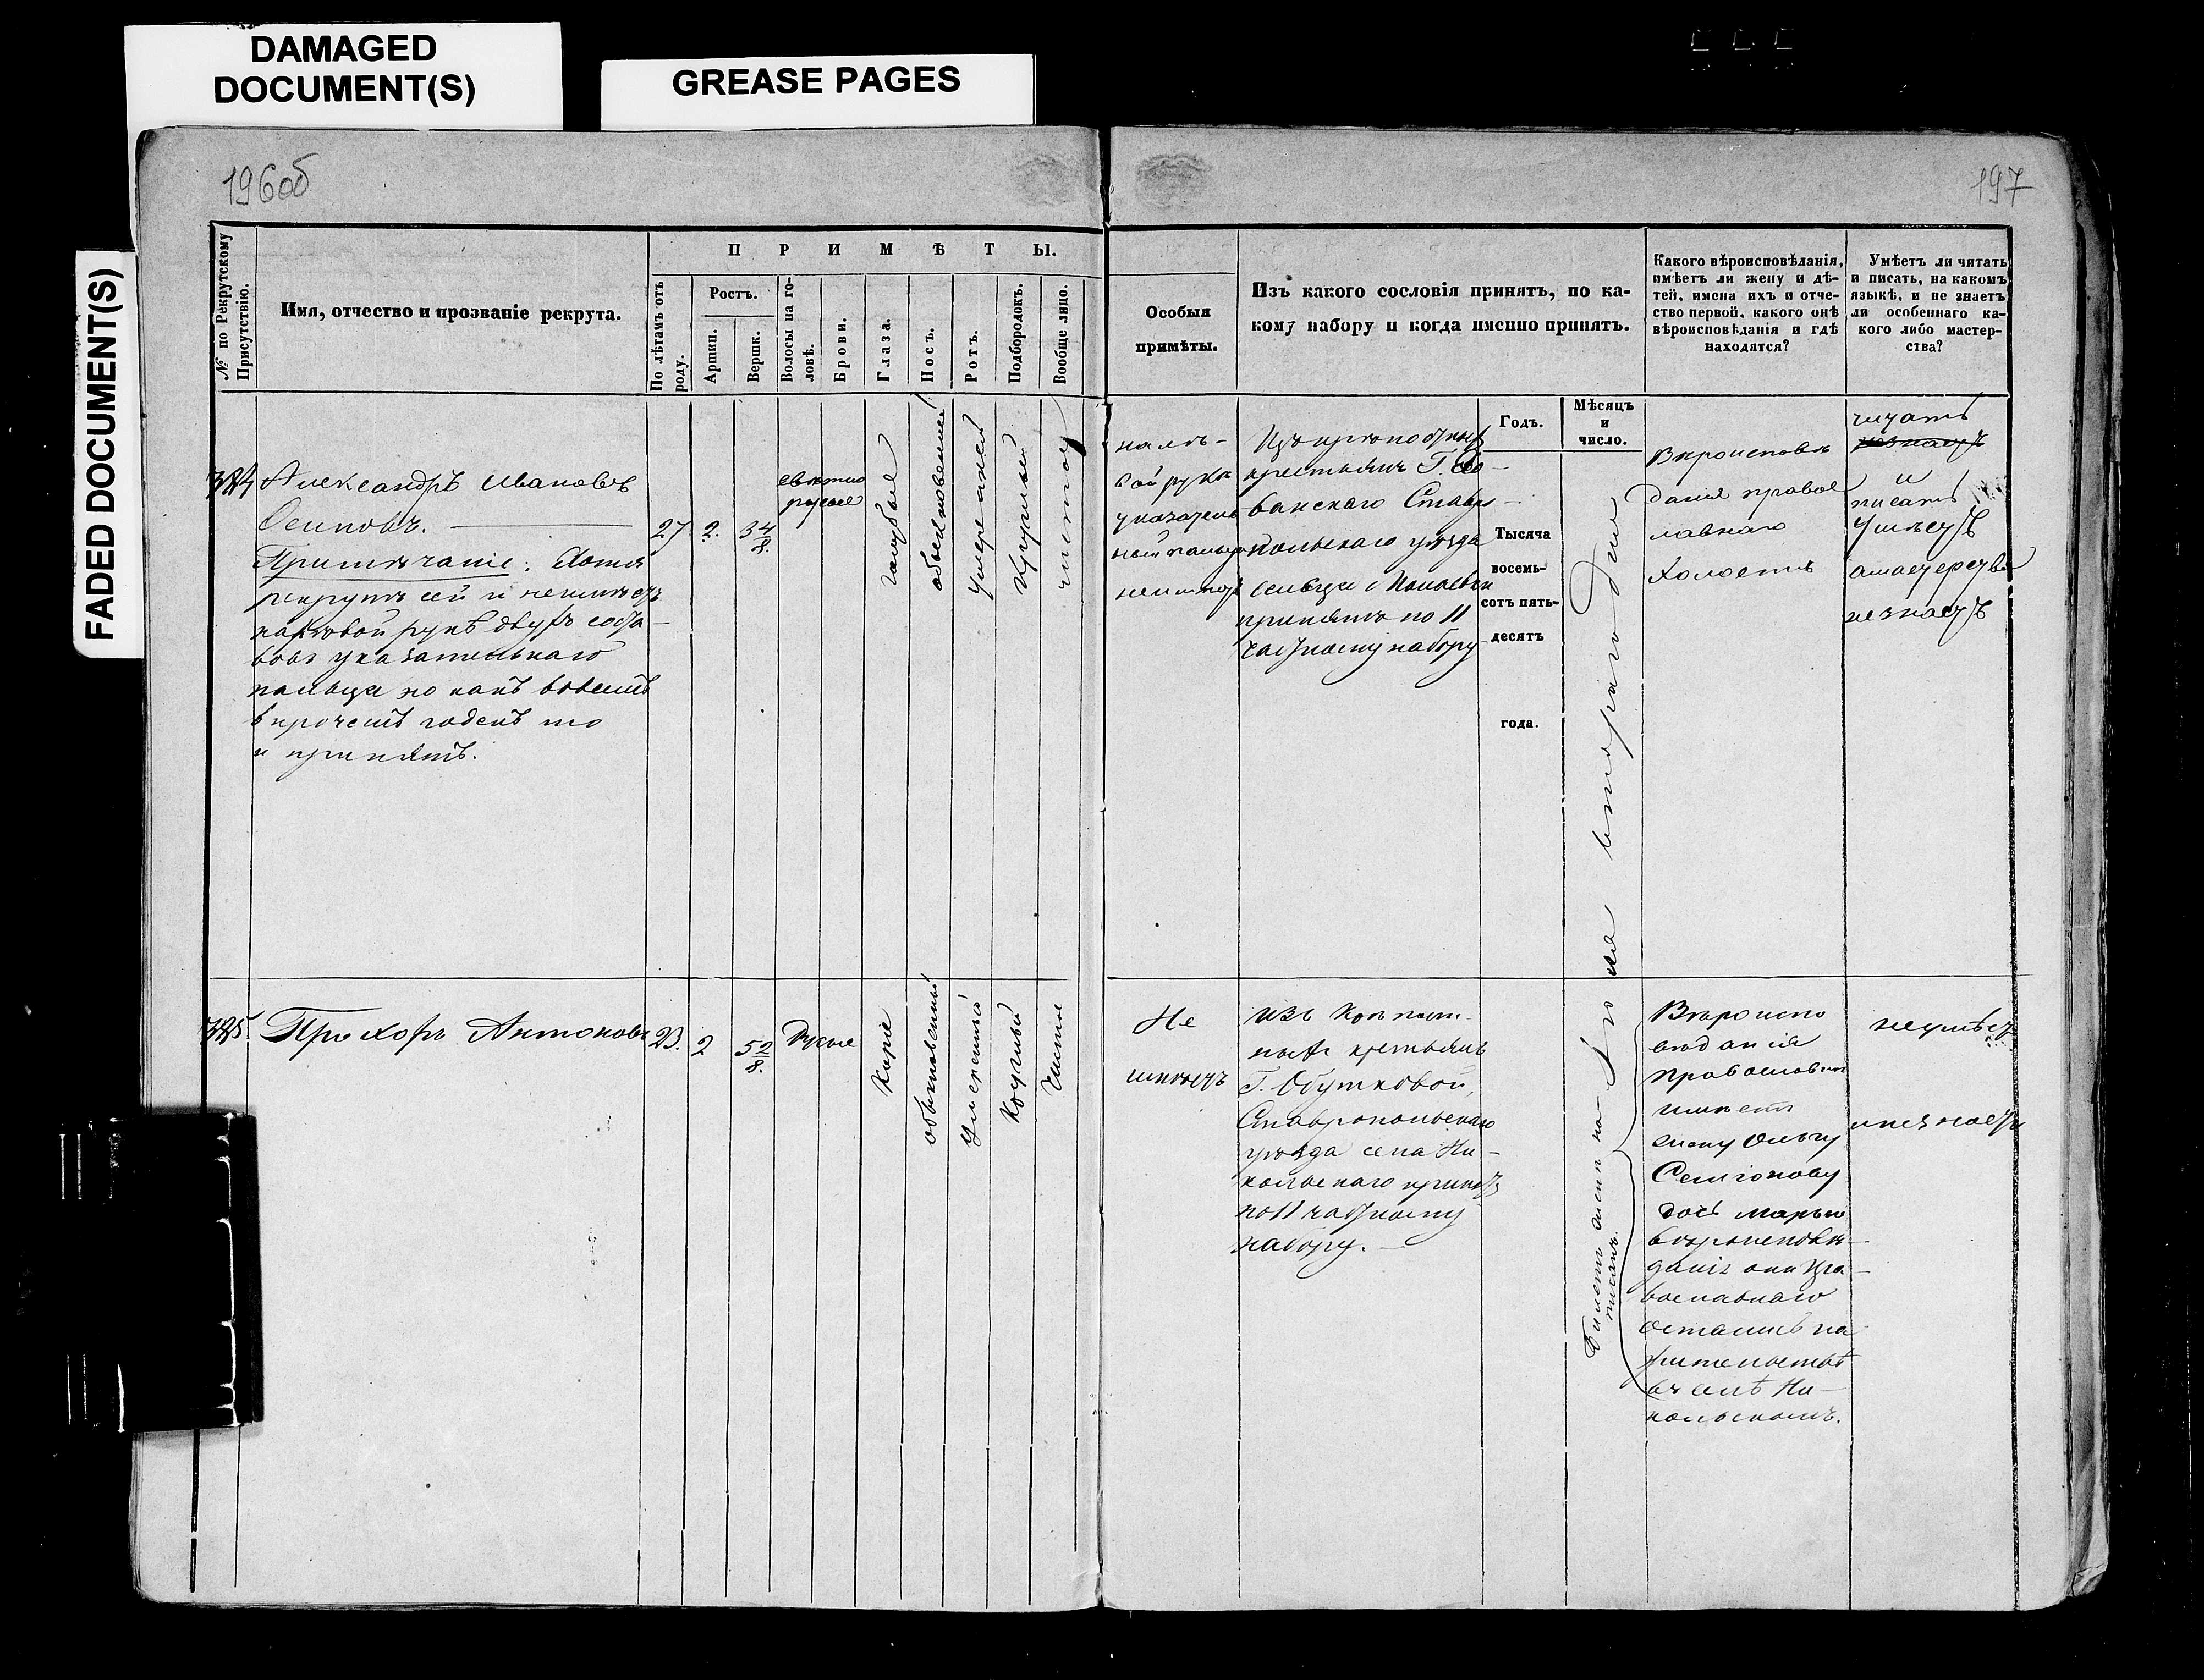 DAMAGED
DOCUMENT(S)
GREASE PAGES
FADED DOCUMENT(S)
196об
197
№ по Рекрутскому
Присутствію.
Имя, отчество и прозваніе рекрута.
ПРИМѢТЫ.
По лѣтамъ отъ
роду.
Ростъ.
Аршин.
Вершк.
Волосы на го-
ловѣ.
Брови.
Глаза.
Носъ.
Ротъ.
Подбородокъ.
Вообще лицо.
Особыя
примѣты.
Изъ какого сословія принятъ, по ка-
кому набору и когда именно принятъ.
Какого вѣроисповѣданія,
имѣетъ ли жену и дѣ-
тей, имена ихъ и отче-
ство первой, какого онѣ
вѣроисповѣданія и гдѣ
находятся?
Умѣетъ ли читать
и писать, на какомъ
языкѣ, и не знаетъ
ли особеннаго ка-
кого либо мастер-
ства?
Годъ.
Мѣсяцъ
и
число.
Тысяча
восемь-
сотъ пять-
десятъ
года.
384
Александръ Ивановъ
Осиповъ.
Примѣчаніе: Хотя
рекрутъ сей и неимѣетъ
налѣвой рукѣ двухъ соста-
вовъ указательнаго
пальца но какъ вовсемъ
впрочемъ годенъ то
и принятъ.
27
2.
3 4/8.
свѣтло
русые
голубые
обыкновенный
умеренный
Круглый
чистое
налѣ-
вой рукѣ
указатель
ный палецъ
Изъ крѣпостныхъ
крестьянъ Г.
ванскаго Ставро-
польскаго уѣзда
сельца
принятъ по 11
частному набору
втораго
Вѣроисповѣ
данія правос
лавнаго
Холостъ
читать
незнаетъ
и
писать
умѣетъ
амастерства
незнаетъ
385
Прохоръ Антоновъ
23.
2
5 2/8.
Русые
Каріе
обыкновенный
Умеренный
Круглый
Чистое
Не
имѣетъ
Изъ Крѣпост-
ныхъ крестьянъ
Г. Обутковой,
Ставропольскаго
уѣзда села Ни-
кольскаго принятъ
по 11 частному
набору.
Билетъ женѣ на-
писанъ.
Вѣроиспо
вѣданія
православнаго
имѣетъ
жену Ольгу
Семіонову
дочь Марью
вѣроисповѣ-
данія они Пра-
вославнаго
остались на
жительствѣ
въ селѣ Ни-
кольскомъ.
неумѣетъ
инезнаетъ